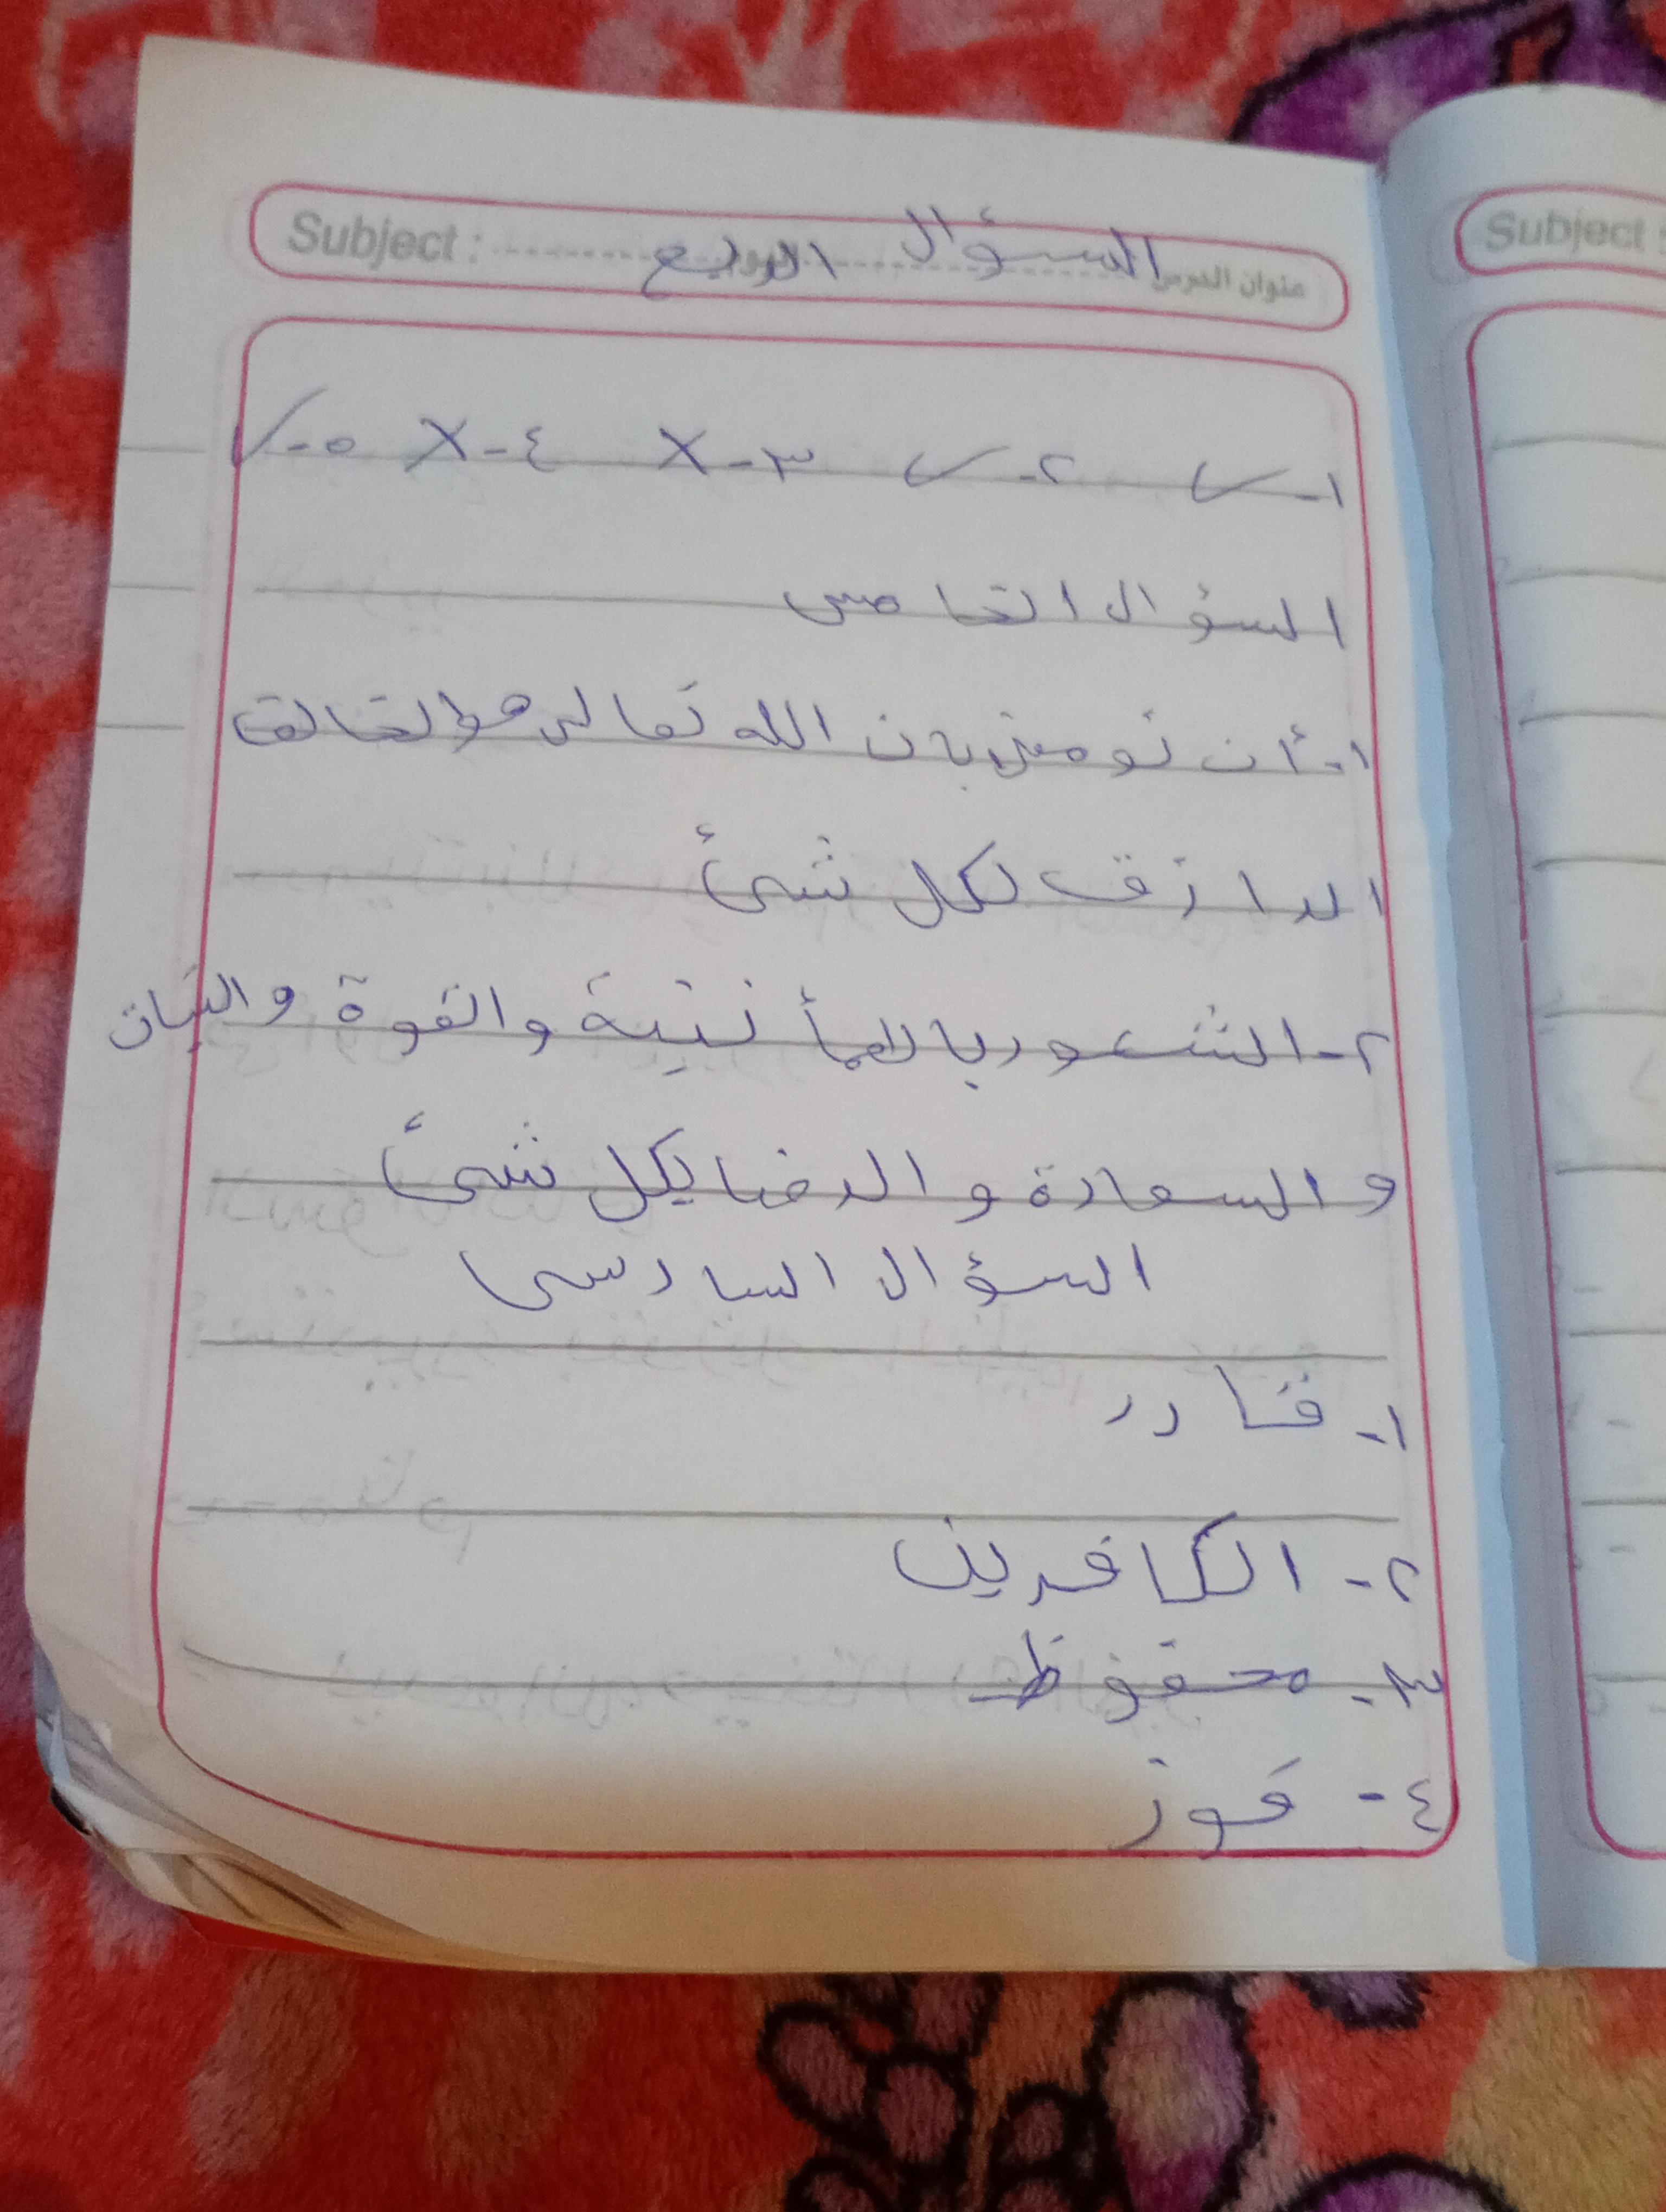 Subject : السؤال الرابع عنوان الدرس
١- ✓ ٢- ✓ ٣- X ٤- X ٥- ✓
السؤال الخامس
١- أن نؤمن بان الله تعالى هو الخالق
الرازق لكل شئ
٢- الشعور بالطمأنينة والقوة والثبات
والسعادة والرضا بكل شئ
السؤال السادس
١- قادر
٢- الكافرين
٣- محفوظ
٤- فوز
Subject :